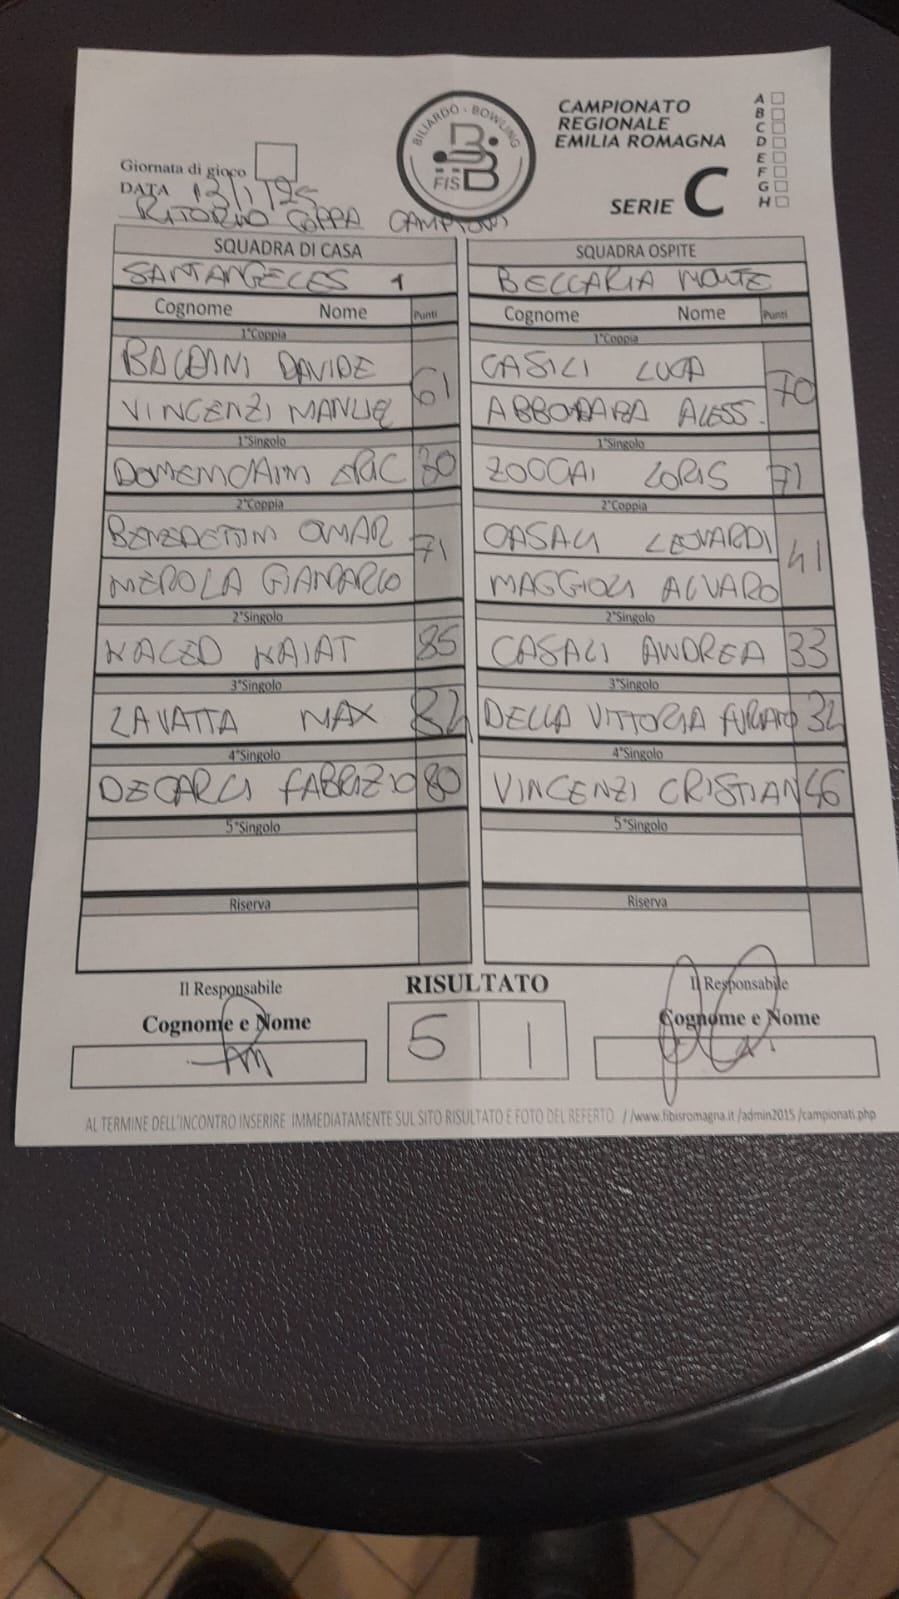 BILIARDO - BOWLING
FISBB
CAMPIONATO
REGIONALE
EMILIA ROMAGNA
SERIE C
A
B
C
D
E
F
G
H
Giornata di gioco
DATA
RITORNO COPPA CAMPIONI
SQUADRA DI CASA
SANTANGELES 1
Cognome Nome Punti
1°Coppia
BALDINI DAVIDE
VINCENZI MANUEL
61
1°Singolo
ERIC
2°Coppia
BENEDETTINI OMAR
MEROLA GIANMARCO
71
2°Singolo
NACED KAJAT 85
3°Singolo
ZAVATTA MAX
4°Singolo
DECARLI FABRIZIO 80
5°Singolo
Riserva
SQUADRA OSPITE
BECCARIA MONTE
Cognome Nome Punti
1°Coppia
CASILI LUCA
ALESS.
70
1°Singolo
LORIS 71
2°Coppia
CASALI LEONARDI
MAGGIOLI ALVARO
41
2°Singolo
CASALI ANDREA 33
3°Singolo
DELLA VITTORIA
4°Singolo
VINCENZI CRISTIAN 46
5°Singolo
Riserva
Il Responsabile
Cognome e Nome
RISULTATO
5 1
Il Responsabile
Cognome e Nome
AL TERMINE DELL'INCONTRO INSERIRE IMMEDIATAMENTE SUL SITO RISULTATO E FOTO DEL REFERTO / /www.fibisromagna.it /admin2015 /campionati.php